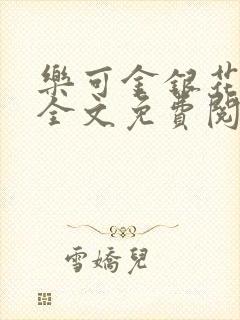 樂可金銀花
全文免費閱
雪嬌兒